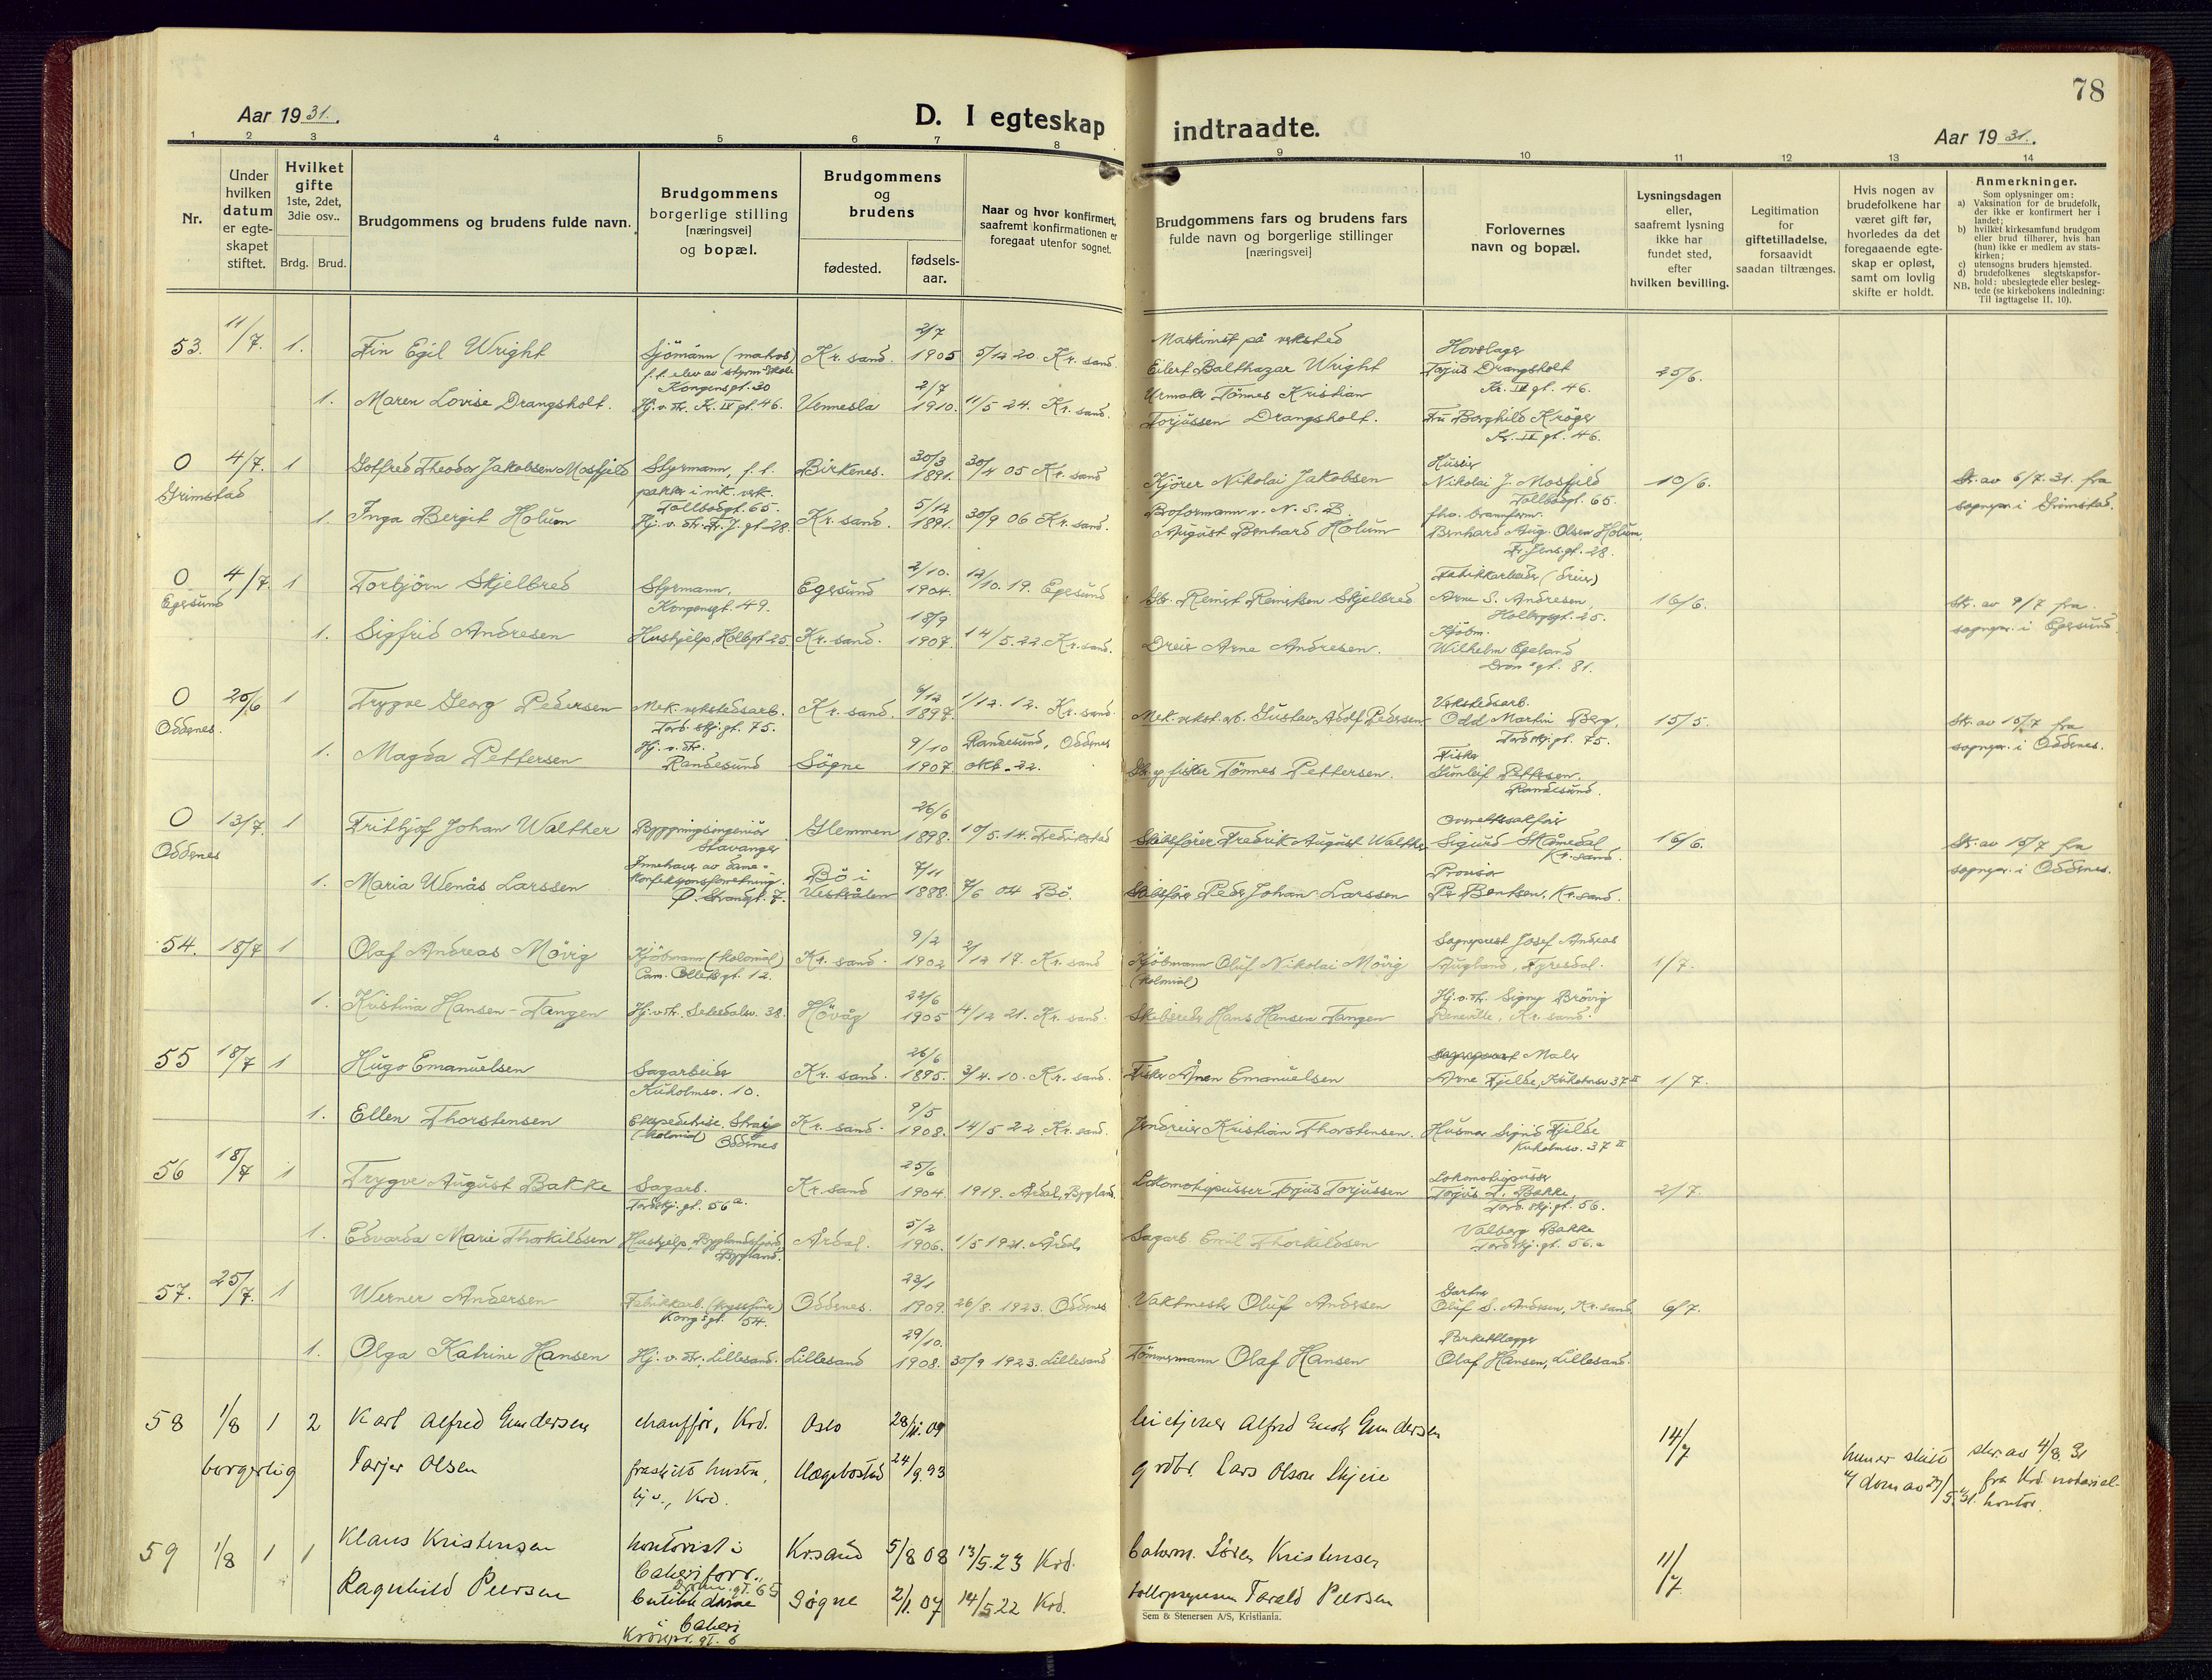 78
Aar 19 31.
D. I egteskap indtraadte.
Aar 19 31.
1 2 3 4 5 6 7 8 9 10 11 12 13 14
Nr.
Under hvilken datum er egte-skapet stiftet.
Hvilket gifte 1ste, 2det, 3die osv..
Brdg. Brud.
Brudgommens og brudens fulde navn.
Brudgommens borgerlige stilling [næringsvei] og bopæl.
Brudgommens og brudens
fødested.
fødsels-aar.
Naar og hvor konfirmert, saafremt konfirmationen er foregaat utenfor sognet.
Brudgommens fars og brudens fars fulde navn og borgerlige stillinger [næringsvei]
Forlovernes navn og bopæl.
Lysningsdagen eller, saafremt lysning ikke har fundet sted, efter hvilken bevilling.
Legitimation for giftetilladelse, forsaavidt saadan tiltrænges.
Hvis nogen av brudefolkene har været gift før, hvorledes da det foregaaende egte-skap er opløst, samt om lovlig skifte er holdt.
Anmerkninger.
Som oplysninger om:
a) Vaksination for de brudefolk, der ikke er konfirmert her i landet;
b) hvilket kirkesamfund brudgom eller brud tilhører, hvis han (hun) ikke er medlem av stats-kirken;
c) utensogns bruders hjemsted.
d) brudefolkenes slegtskapsfor-hold: ubeslegtede eller besleg-tede (se kirkebokens indledning: Til iagttagelse II. 10).
NB.
53. 11/7. 1. Fin Egil Wright Sjömann (matros) f.t. elev av styrm.skole Kongensgt. 30 Kr. sand. 2/7 1905 5/12 20. Kr. sand. Maskinist på verksted Eilert Balthazar Wright Hovslager Torjus Drangsholt Kr. IV gt. 46. 25/6.
1. Maren Lovise Drangsholt. Hj. v. Fr. Kr. IV gt. 46. Vennesla 2/7 1910. 11/5 24. Kr. sand. Urmaker Tönnes Kristian Torjussen Drangsholt. Fru Borghild Kröger Kr. IV gt. 46.
O Grimstad 4/7. 1 Gotfred Theodor Jakobsen Mosfjeld Styrmann, f. t. pakker i nik. verk. Tollbodgt. 65. Birkenes. 30/3 1891. 30/4 05 Kr. sand Kjörer Nikolai Jakobsen Nikolai J. Mosfjeld Tollbodgt. 65. 10/6. Str. av 6/7. 31. fra sognepr. i Grimstad.
1. Inga Bergit Holum Hj. v. Fr. Fr. J. gt. 28. Kr. sand. 5/12 1891. 30/9 06 Kr. sand. Boformann v. N. S. B. August Bernhard Holum fhv. brannform. Bernhard Aug. Olsen Holum, Fr. Jensgt. 28.
O Egersund 4/7. 1 Torbjörn Skjelbred Styrmann, Kongensgt. 49. Egersund 2/10. 1904. 12/10. 19. Egersund Gbr. Reinert Reinertsen Skjelbred Fabrikkarbeider (dreier) Arne S. Andresen, Holbergsgt. 25. 16/6. Str. av 9/7 fra sognepr. i Egersund.
1. Sigfrid Andresen Hushjelp, Holbgt. 25. Kr. sand. 18/9 1907. 14/5. 22. Kr. sand. Dreier Arne Andresen. Kjöbm. Wilhelm Egeland Dron.s gt. 81.
O Oddernes. 20/6 1 Trygve Georg Pedersen Mek. verkstedsarb. Tord. skj. gt. 75. Kr. sand. 6/12 1897. 1/12. 12. Kr. sand. Mek. verkst. arb. Gustav Adolf Pedersen Verkstedsarb. Odd Martin Berg, Tordskj. gt. 75. 15/5. Str. av 15/7 fra sognepr. i Oddernes.
1. Magda Pettersen Hj. v. Fr. Randesund Sögne 9/10 1907. Randesund, Oddernes okt. 22. Gbr. og fisker Tönnes Pettersen. Fisker Gunleif Pettersen. Randesund.
O Oddernes 13/7. 1 Fritjof Johan Walther Bygningsingeniör Stavanger Glemmen 26/6 1898. 10/5. 14. Fredrikstad Skibsförer Fredrik August Walther Overrettssakförer Sigurd Skåmedal Kr. sand. 16/6. Str. av 15/7 fra sognepr. i Oddernes.
1. Maria Wenås Larssen Innehaver av dame-konfeksjonsforretning. Ø. Strandgt. 7. Bö i Vesterålen 7/11 1888. 7/6 04 Bö. Skibsförer Peder Johan Larssen Provisor Per Bentsen, Kr. sand.
54. 18/7 1 Olaf Andreas Mövig Kjöbmann (kolonial) Cam. Colletts gt. 12. Kr. sand. 9/2 1902 2/12 17. Kr. sand Kjöbmann Oluf Nikolai Mövig (kolonial) Sogneprest Josef Andreas Augland, Fyresdal. 1/7.
1. Kristina Hansen-Tangen Hj. v. Fr. Setesdalsv. 38. Höväg 22/6 1905 4/12 21. Kr. sand. Skibsreder Hans Hansen Tangen Hj. v. Fr. Signy Brövig Kr. sand.
55 18/7 1 Hugo Emanuelsen Sagarbeider Kuholmsv. 10. Kr. sand. 26/6 1895. 3/4. 10. Kr. sand. Fisker Ånen Emanuelsen Maler Arne Fjelde, Kuholmsv 37 II 1/7.
1. Ellen Thorstensen Ekspeditrise. Strai (kolonial) Oddernes Kr. sand. 9/5 1908. 14/5 22. Kr. sand. Jerndreier Kristian Thorstensen. Husmor Signe Fjelde Kuholmsv. 37 II
56 18/7 1 Trygve August Bakke Sagarb. Tordskj. gt. 56 a. Kr. sand 25/6 1904. 1919. Årdal, Bygland. Lokomotivpusser Torjus Torjussen Lokomotivpusser Torjus T. Bakke. Tord. skj. gt. 56. 2/7.
1. Edvarda Marie Thorkildsen Hushjelp, Byglandsfjord, Bygland. Årdal. 5/2 1906. 1/5 1921. Årdal. Sagarb. Emil Thorkildsen Valborg Bakke Tordskj. gt. 56. a
57. 25/7. 1 Werner Andersen Fabrikkarb. Kong.s gt. 54. Oddernes. 23/1 1909. 26/8. 1923. Oddernes Vaktmester Oluf Andersen Gartner Oluf S. Andersen, Kr. sand. 6/7.
1. Olga Katrine Hansen Hj. v. Fr. Lillesand. Lillesand 29/10. 1908. 30/9 1923. Lillesand Tömmermann Olaf Hansen Parkettlegger Olaf Hansen, Lillesand.
58 1/8 1 2 Karl Alfred Gundersen chauffør, Krd. Oslo 28/11. 09 Alfred Gundersen 14/7
borgerlig Tarjer Olsen fraskilt hustru, hj v., Krd. Hægebostad 24/9. 93 grdbr. Lars Olsen Skjeie hun er skilt v/ dom av 29/5. 31. skr. av 4/8. 31 fra Krd. notarial-kontor.
59 1/8 1 1 Klaus Kristensen kontorist i bakeriforr., Dronn. gt. 65 Krsand 5/8 08 13/5. 23 Krd. bakerm. Søren Kristensen 11/7
Ragnhild Peersen butikkdame i bakeri Kronpr. gt. 6 Søgne 2/1. 07 14/5 22 Krd. Tarald Peersen
Sem & Stenersen A/S, Kristiania.